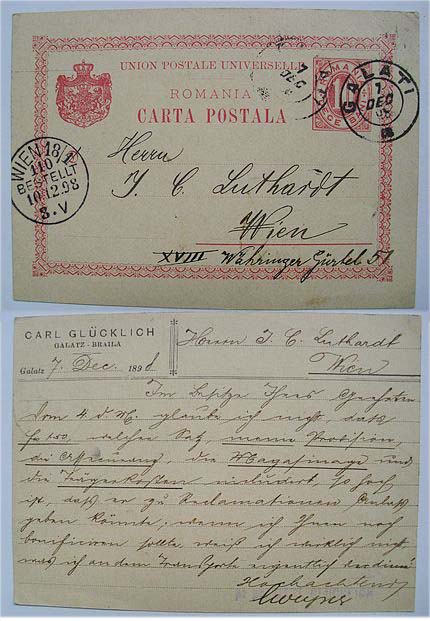 UNION POSTALE UNIVERSELLE
ROMANIA
CARTA POSTALA
GALATI
7
DEC
WIEN 18/1
110
BESTELLT
10.12.98
8.V
7
DEC
Herrn
J. C. Luthardt
Wien
XVIII Währinger Gürtel 51
CARL GLÜCKLICH
GALATZ - BRAILA
Galatz 7. Dec. 1898.
Herrn J. C. Luthardt
Wien
Im Besitze Ihres Geehrten
vom 4. d. M. glaube ich nicht, daß
welcher Satz, meine Provision,
die die Magazinage und
die Trägerkosten so hoch
ist, daß er zu Reclamationen Anlaß
geben könnte; wenn ich Ihnen noch
bonificiren sollte, weiß ich wirklich nicht,
was ich an dem Transporte eigentlich verdiene
Hochachtend